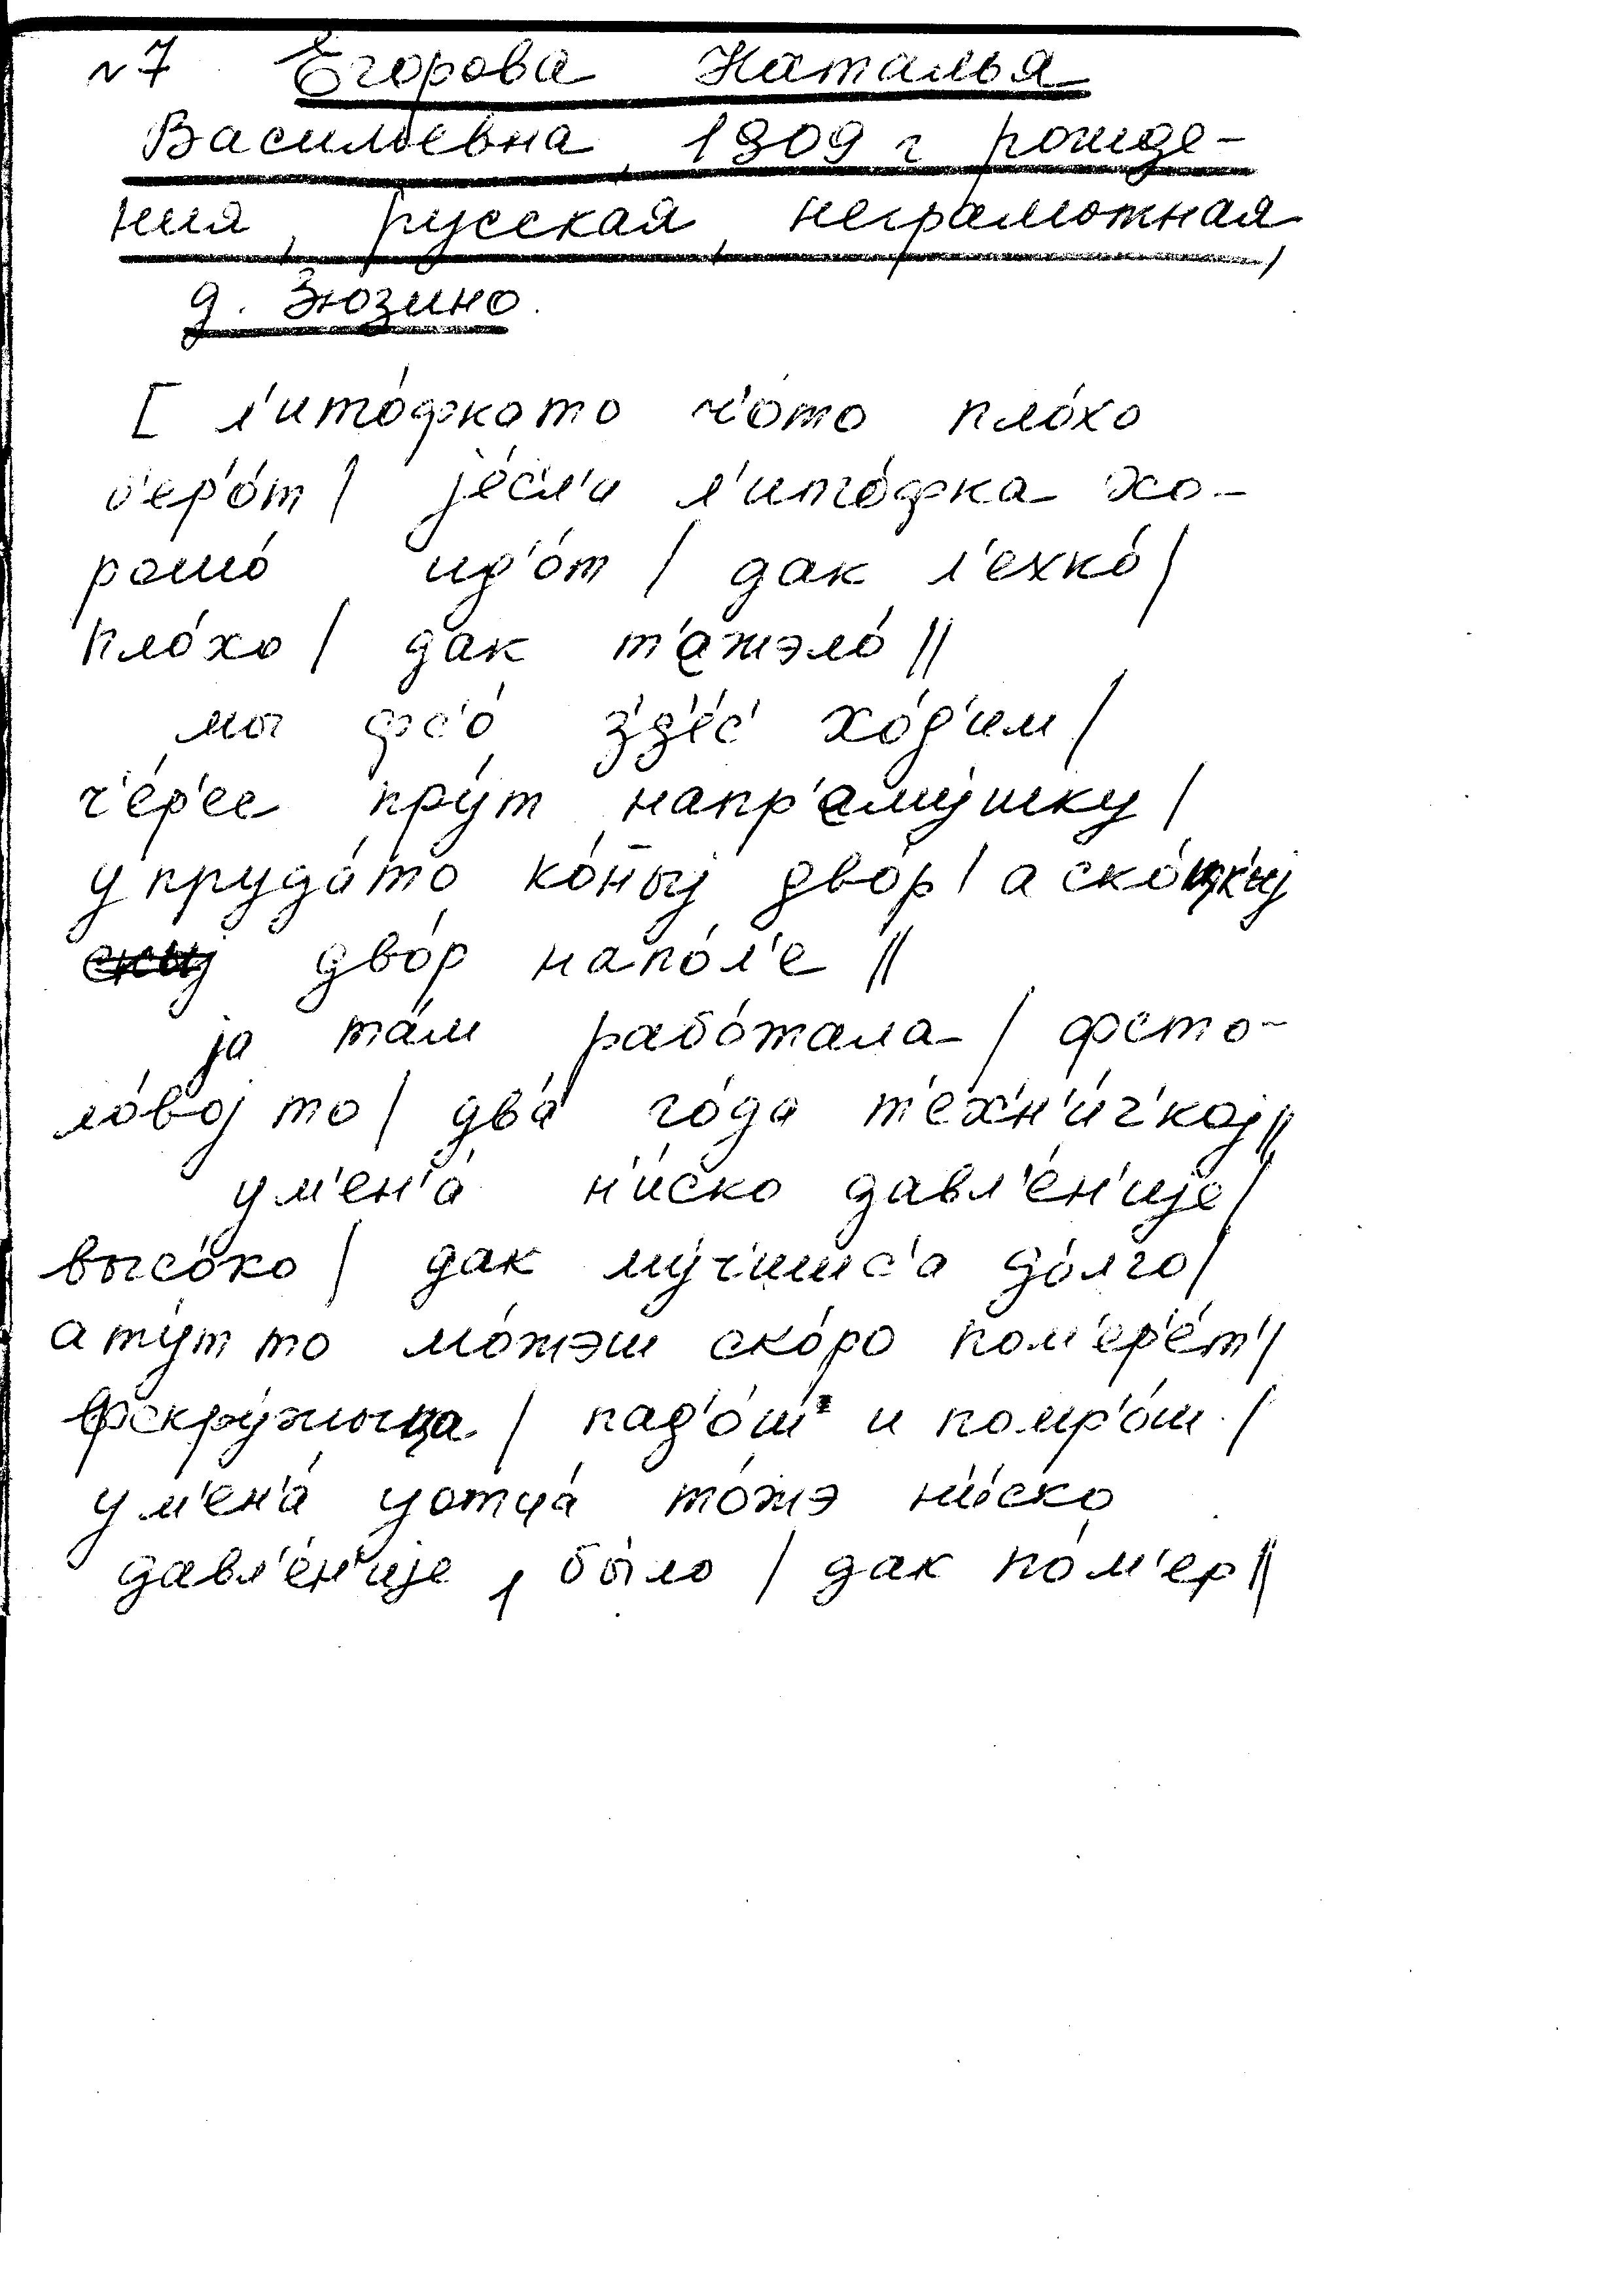 №7 Егорова Наталья
Васильевна, 1909 г рожде-
ния, русская, неграмотная,
д. Зюзино.
[ л'ито́фкато ч'о́то пло́хо
б'ер'о́т | jе́с'л'и л'ито́фка хо-
рошо́ ид'о́т | дак л'ехко́ |
пло́хо | дак т'ажэло́ ||
мы фс'о́ з'д'е́с' хо́д'им |
ч'е́р'ес пру́т напр'аму́шку |
у пруда́то ко́ныj дво́р | а ско́цк'иj
дво́р напо́л'е ||
jа та́м рабо́тала | фсто-
ло́воj то | два́ го́да т'ех'н'и́ч'коj ||
ум'ен'а́ н'и́ско давл'е́н'иjе |
высо́ко | дак му́ч'ишс'а до́лго |
а ту́т то мо́жэш ско́ро пом'ер'е́т' |
фскру́жыца | пад'о́ш и помр'о́ш |
ум'ен'а́ уотца́ то́жэ н'и́ско
давл'е́н'иjе, бы́ло | дак по́м'ер ||